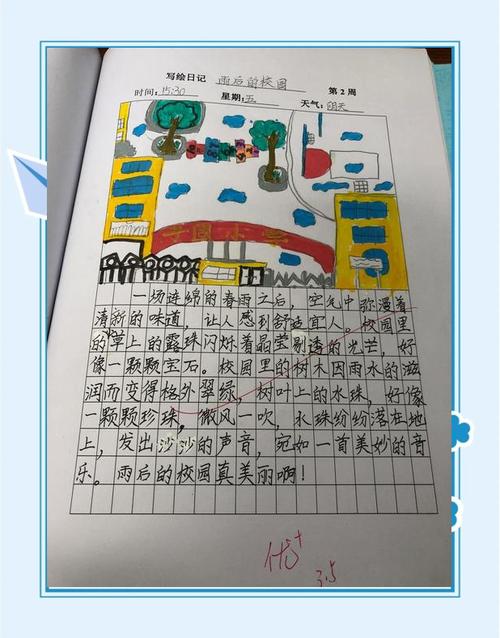 写绘日记 雨后的校园
时间:15:30 星期:五 天气:阴天 第2周
子园小学
一场连绵的春雨之后，空气中弥漫着
清新的味道，让人感到舒适宜人。校园里
的草上的露珠闪烁着晶莹剔透的光芒，好
像一颗颗宝石。校园里的树木因雨水的滋
润而变得格外翠绿，树叶上的水珠，好像
一颗颗珍珠，微风一吹，水珠纷纷落在地
上，发出沙沙的声音，宛如一首美妙的音
乐。雨后的校园真美丽啊！
优+
3.5